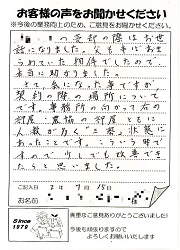 お客様の声をお聞かせください
※今後の業務向上のため、ご意見をお聞かせください
の売却の際はお世
話になりました。父も半ばあき
らめていた物件でしたので、
本当に助かりました。
さて、私になった事ですが
契約の際の場所について
です。事務所の向かって右の
部屋、農協の部屋ともに
人数が多く"三密"状態に
あったことです。こういう時で
すので少しでも改善でき
たらと思いました。
ご記入日 2年 7月 15日
お名前
Since
1979
貴重なご意見ありがとうございました!
今後も頑張りますので
よろしくお願いいたします